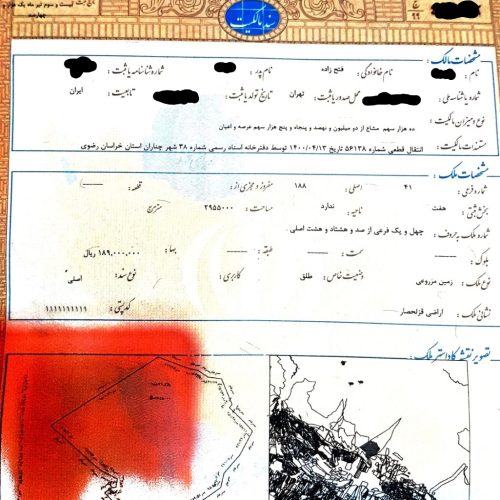 بیست و سوم تیر ماه یک هزار و
چهارصد
سند مالکیت
ج
۹۹
مشخصات مالک :
نام : نام خانوادگی : فتح زاده نام پدر : شماره شناسنامه یا ثبت :
شماره یا شناسه ملی : محل صدور یا ثبت : تهران تاریخ تولد یا ثبت : تابعیت : ایران
نوع و میزان مالکیت : ده هزار سهم مشاع از دو میلیون و نهصد و پنجاه و پنج هزار سهم عرصه و اعیان
مستندات مالکیت : انتقال قطعی شماره ۵۶۱۳۸ تاریخ ۱۴۰۰/۰۴/۱۳ توسط دفترخانه اسناد رسمی شماره ۳۸ شهر چناران استان خراسان رضوی
مشخصات ملک :
شماره فرعی : ۴۱ اصلی : ۱۸۸ مفروز و مجزی از : قطعه :
بخش ثبتی : هفت ناحیه : ندارد مساحت : ۲۹۵۵۰۰۰ مترمربع
شماره ملک به حروف : چهل و یک فرعی از صد و هشتاد و هشت اصلی
بلوک : سمت : طبقه : بها : ۱۸۹,۰۰۰,۰۰۰ ریال
نوع ملک : زمین مزروعی وضعیت خاص : طلق کاربری : نوع سند : اصلی
نشانی ملک : اراضی قزلحصار کدپستی : ۱۱۱۱۱۱۱۱۱۱
تصویر نقشه کاداستر ملک